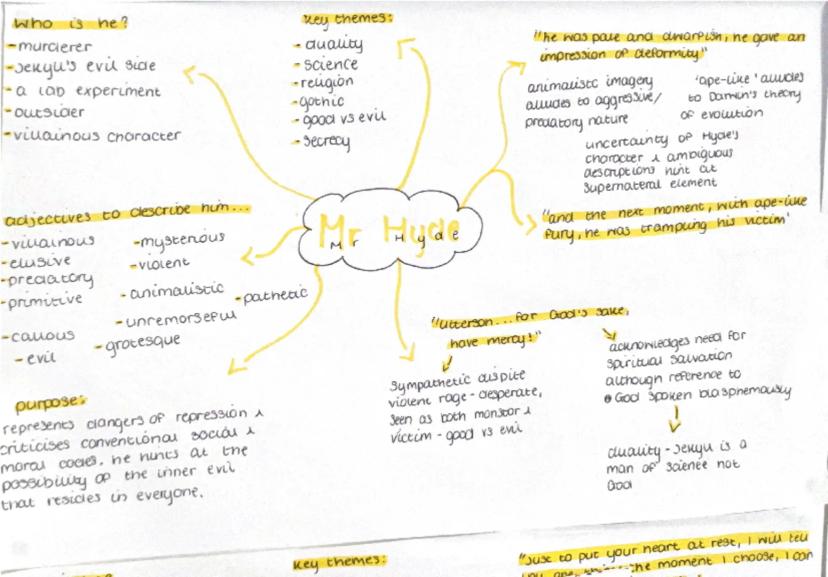 Who is he?
-murderer
-Jekyll's evil side
-a lab experiment
-outsider
-villainous character
Key themes:
-duality
-science
-religion
-gothic
-good vs evil
-secrecy
"he was pale and dwarfish, he gave an
impression of deformity"
animalistc imagery
alludes to aggressive/
predatory nature
'ape-like' alludes
to Darwin's theory
of evolution
uncertainty of Hyde's
character & ambiguous
descriptions hint at
supernateral element
"and the next moment, with ape-like
fury, he was trampling his victim'
Mr Hyde
Mr Hyde
adjectives to describe him...
-villainous
-elusive
-predatory
-primitive
-callous
-evil
-mysterous
-violent
-animalistic
-unremorseful
-grotesque
-pathetic
purpose:
represents dangers of repression &
criticises conventional social &
moral codes. he hints at the
possibility of the inner evil
that resides in everyone.
"Utterson...for God's sake,
have mercy!"
sympathetic dispite
violent rage-desperate,
seen as both monster &
victim - good vs evil
acknowledges need for
spiritual salvation
although reference to
God spoken blasphemously
duality - Jekyll is a
man of science not
God
Key themes:
"Just to put your heart at rest, I will tell
the moment I choose, I can